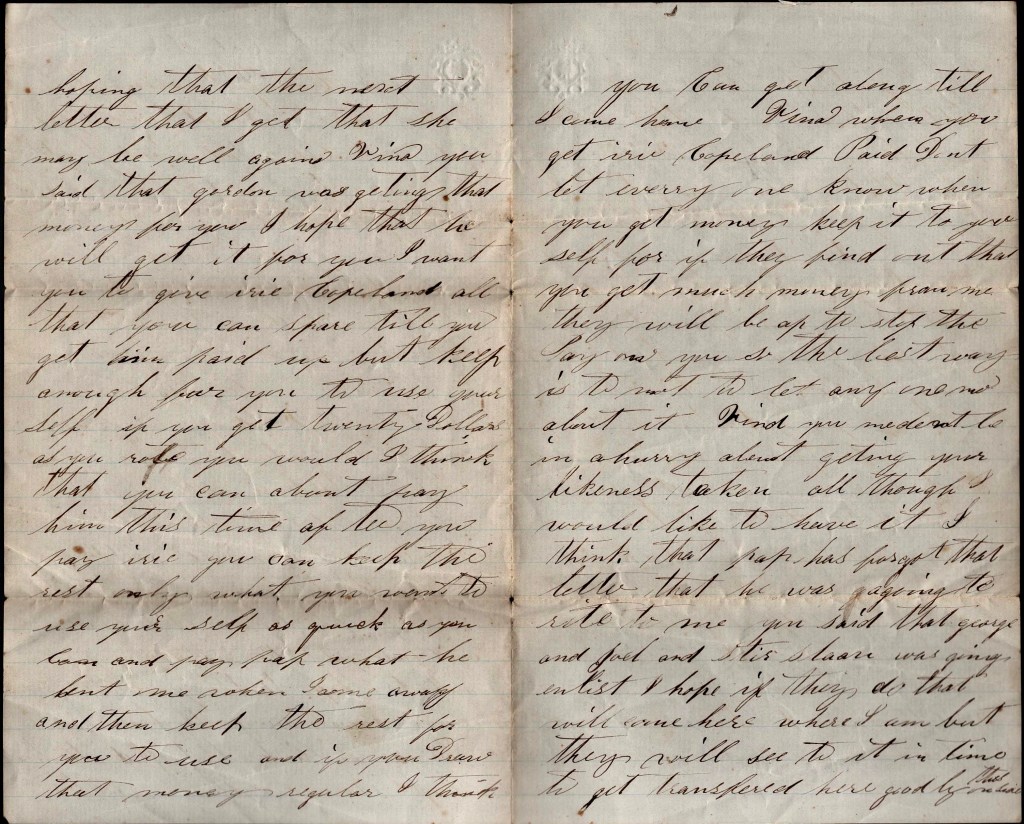 hoping that the next
letter that I get that she
may be well againe Vina you
said that gordon was geting that
money for you I hope that he
will get it for you I want
you to give irie Copeland all
that you can spare till you
get him paid up but keep
anough for you to use your
self if you get twenty Dollars
as you rote you would I think
that you can about pay
him this time after you
pay irie you can keep the
rest only what you want to
use your self as quick as you
can and pay pap what he
lent me when I came away
and then keep the rest for
you to use and if you Draw
that money regular I think
you Can get along till
I come home Vina when you
get irie Copeland Paid Dont
let everry one know when
you get money keep it to you
self for if they find out that
you get much money from me
they will be ap to stop the
pay on you so the best way
is to not to let any one no
about it Vina you nedent be
in a hurry about geting your
likeness taken all though I
would like to have it I
think that pap has forgot that
letter that he was agoing to
rite to me you said that george
and Joel and was going
enlist I hope if they do that
will come here where I am but
they will see to it in time
to get transfered here good by this